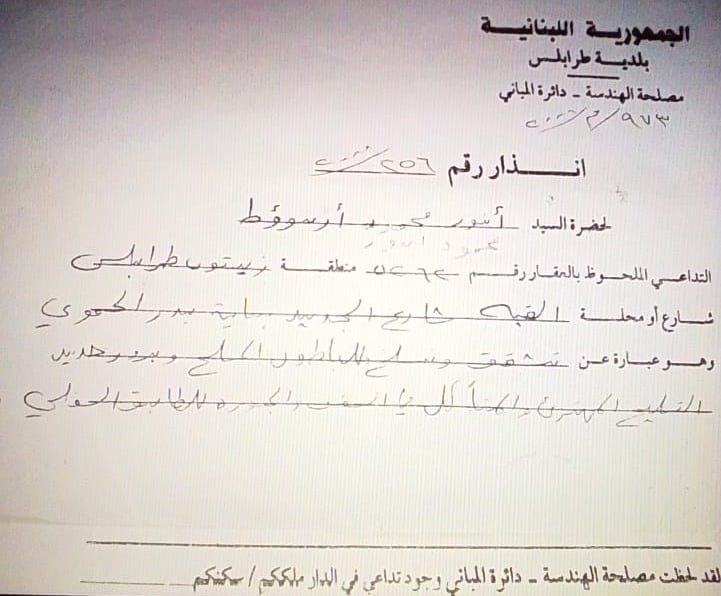 الجمهورية اللبنانية
بلدية طرابلس
مصلحة الهندسة - دائرة المباني
٩٧٣/م/
انذار رقم ٢٥٦/
لحضرة السيد أنور محمد أرسوقط
محمود انور
التداعي الملحوظ بالعقار رقم ٥٢٦٢ منطقة زيتون طرابلس
شارع أو محلة القبه شارع الجديد بناية بدر الحموي
وهو عبارة عن تشقق وسلخ للباطون المسلح وبروز حديد
التسليح المهترئ والمتآكل في السقف والجدره للطابق السفلي
لقد لحظت مصلحة الهندسة - دائرة المباني وجود تداعي في الدار ملككم / سكنكم